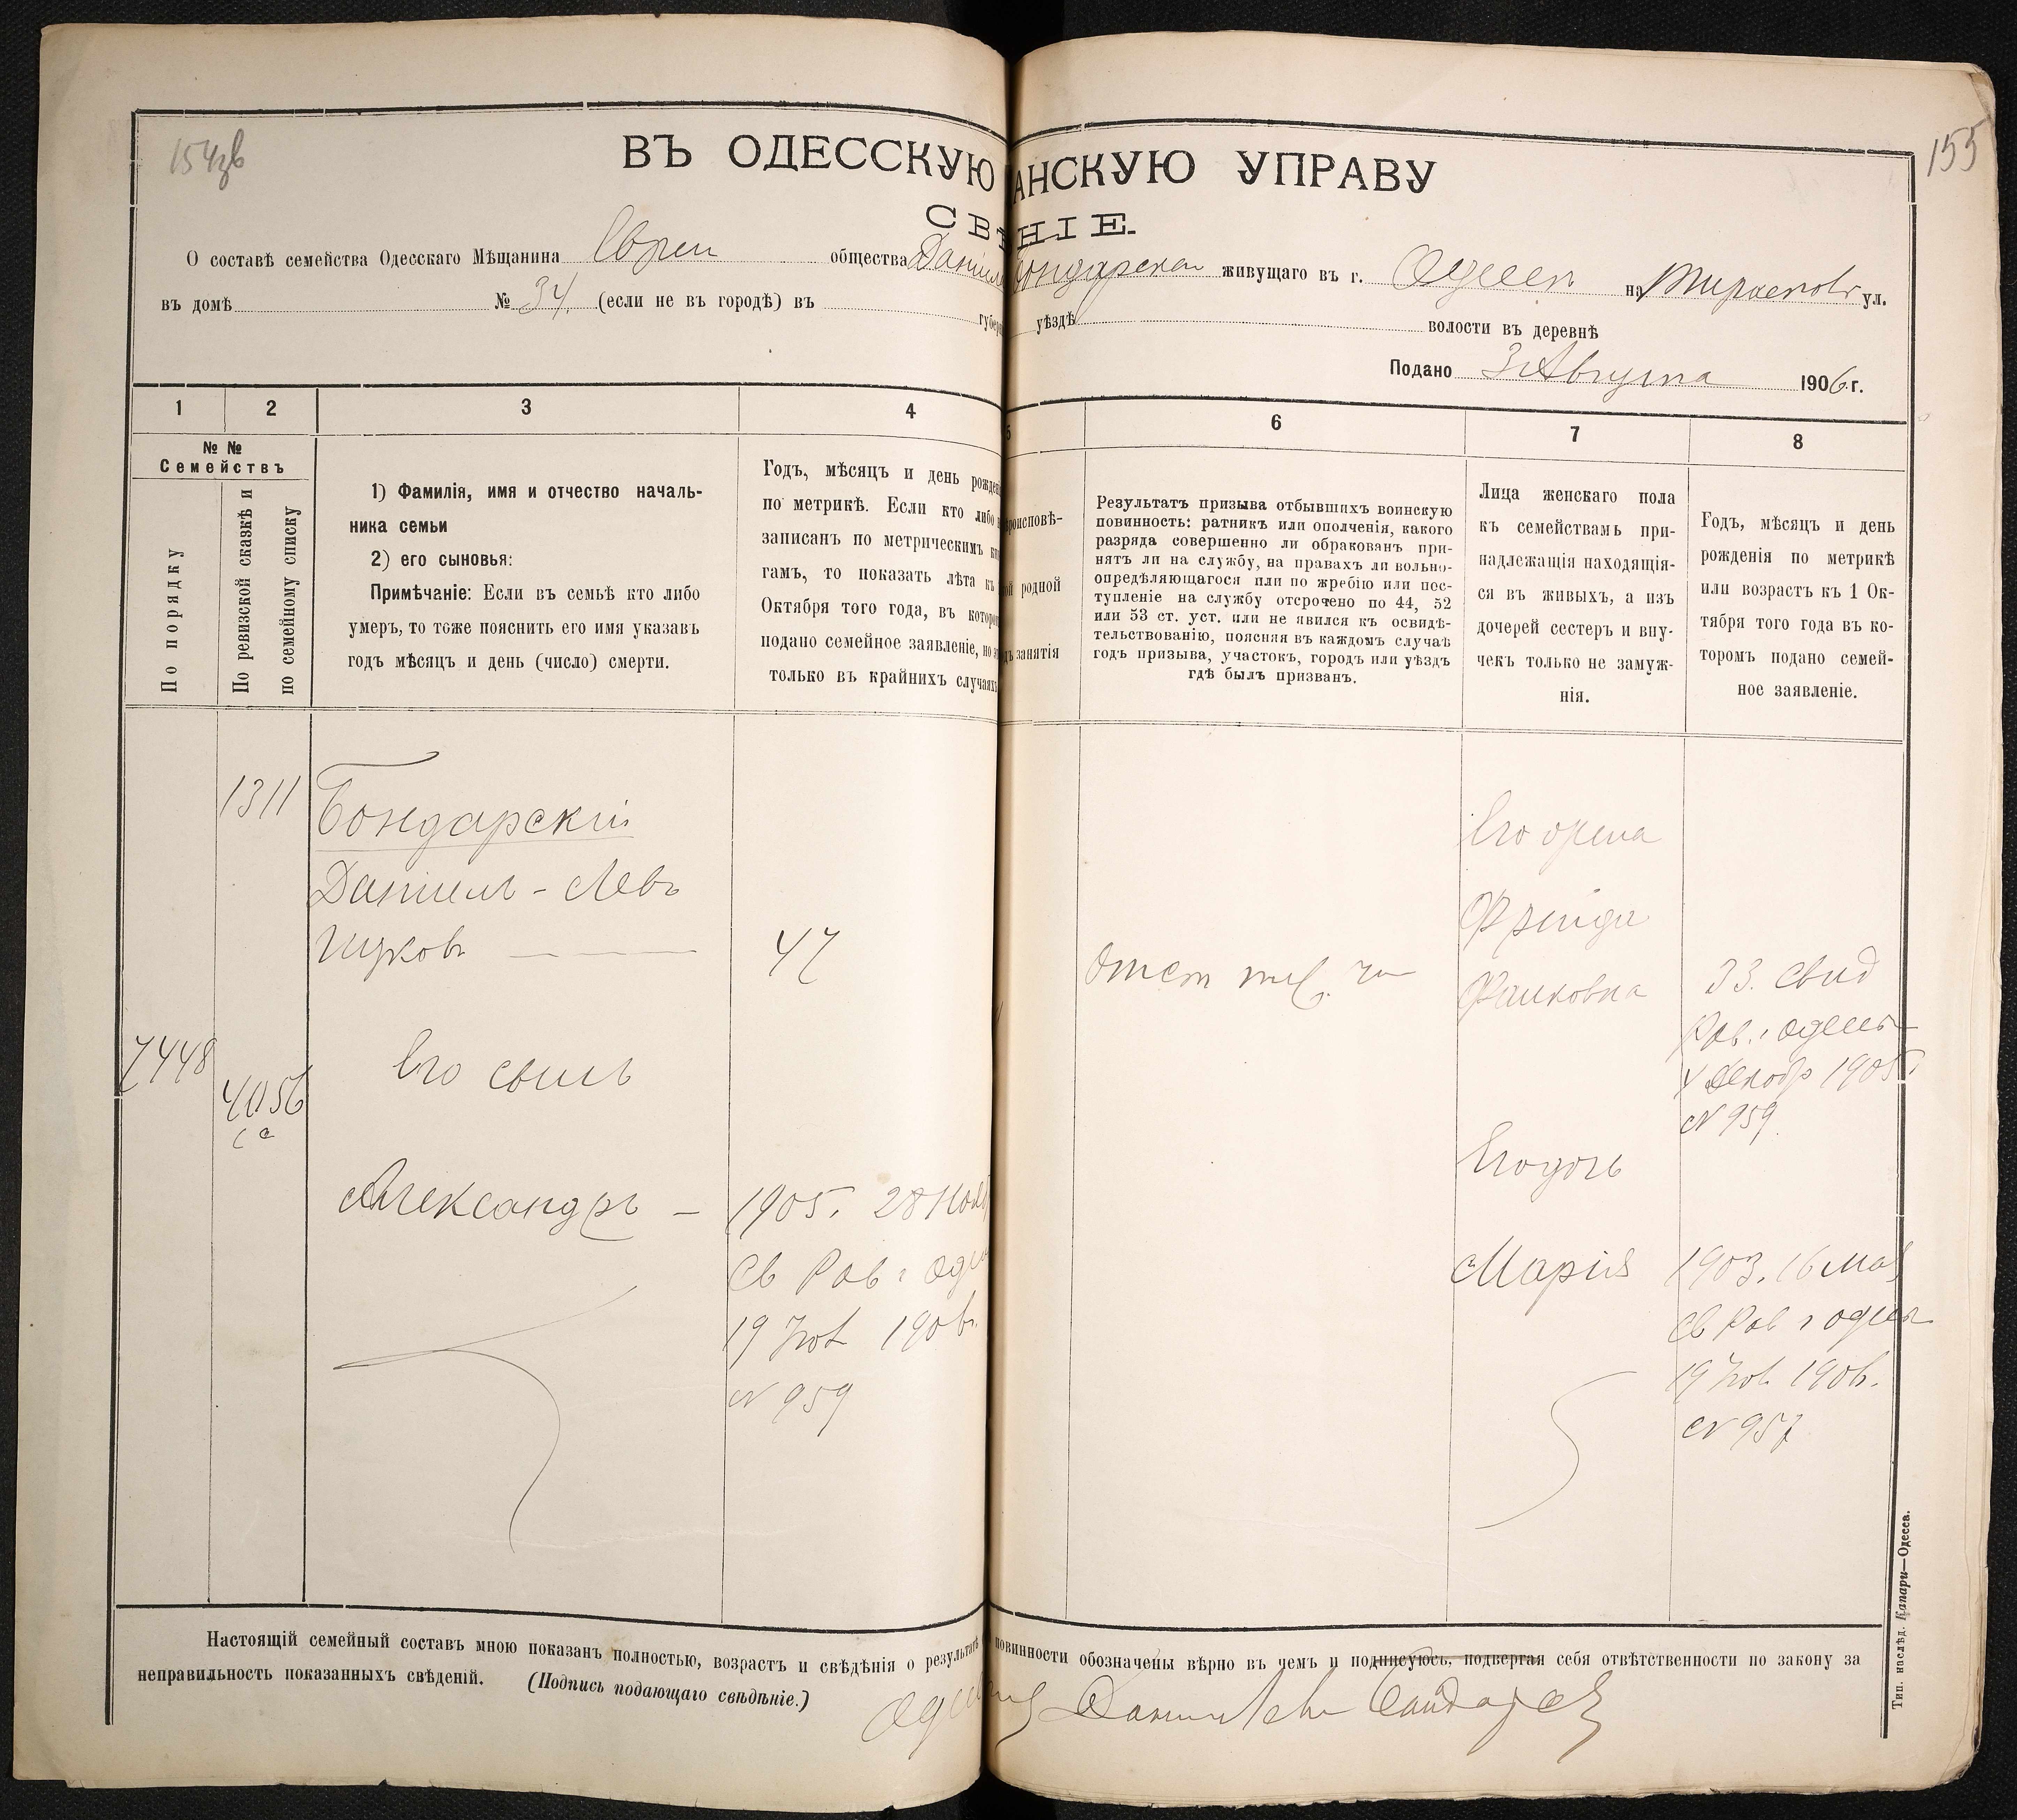 155
ВЪ ОДЕССКУЮ АНСКУЮ УПРАВУ
СВѢ НІЕ.
О составѣ семейства Одесскаго Мѣщанина Евреи общества Даніель Бондарскаго живущаго въ г. Одессѣ на Тираспольс ул.
въ домѣ № 34. (если не въ городѣ) въ губер уѣздѣ волости въ деревнѣ
Подано 3 Августа 1906 г.
1 2 3 4 5 6 7 8
№ №
Семействъ
По порядку
По ревизской сказкѣ и
по семейному списку
1) Фамилія, имя и отчество началь-
ника семьи
2) его сыновья:
Примѣчаніе: Если въ семьѣ кто либо
умеръ, то тоже пояснить его имя указавъ
годъ мѣсяцъ и день (число) смерти.
Годъ, мѣсяцъ и день рожден
по метрикѣ. Если кто либо н
записанъ по метрическимъ кн
гамъ, то показать лѣта къ
Октября того года, въ которо
подано семейное заявленіе, но э
только въ крайнихъ случаяхъ
роисповѣ-
ой родной
дъ занятія
Результатъ призыва отбывшихъ воинскую
повинность: ратникъ или ополченія, какого
разряда совершенно ли обракованъ при-
нятъ ли на службу, на правахъ ли вольно-
опредѣляющагося или по жребію или пос-
тупленіе на службу отсрочено по 44, 52
или 53 ст. уст. или не явился къ освидѣ-
тельствованію, поясняя въ каждомъ случаѣ
годъ призыва, участокъ, городъ или уѣздъ
гдѣ былъ призванъ.
Лица женскаго пола
къ семействамъ при-
надлежащія находящія-
ся въ живыхъ, а изъ
дочерей сестеръ и вну-
чекъ только не замуж-
нія.
Годъ, мѣсяцъ и день
рожденія по метрикѣ
или возрастъ къ 1 Ок-
тября того года въ ко-
торомъ подано семей-
ное заявленіе.
1311
Бондарскій
Даніель - Левъ
Ицковъ
47
Его жена
Фрейда
Фаиковна
33. свид
Рав. г Одессы
4 Декабр 1905 г.
№ 959
7448
4056
Его сынъ
Александръ -
1905. 28 Нояб
Св Рав г Одес
19 1906 г.
№ 959
Его дочь
Марія
1903. 16 мая
Св Рав г Одессы
19 1906.
№ 957
Настоящій семейный составъ мною показанъ полностью, возрастъ и свѣдѣнія о результатѣ повинности обозначены вѣрно въ чемъ и подписуюсь, подвергая себя отвѣтственности по закону за
неправильность показанныхъ свѣденій. (Подпись подающаго свѣдѣніе.)
Тип. наслѣд. Капари—Одесса.